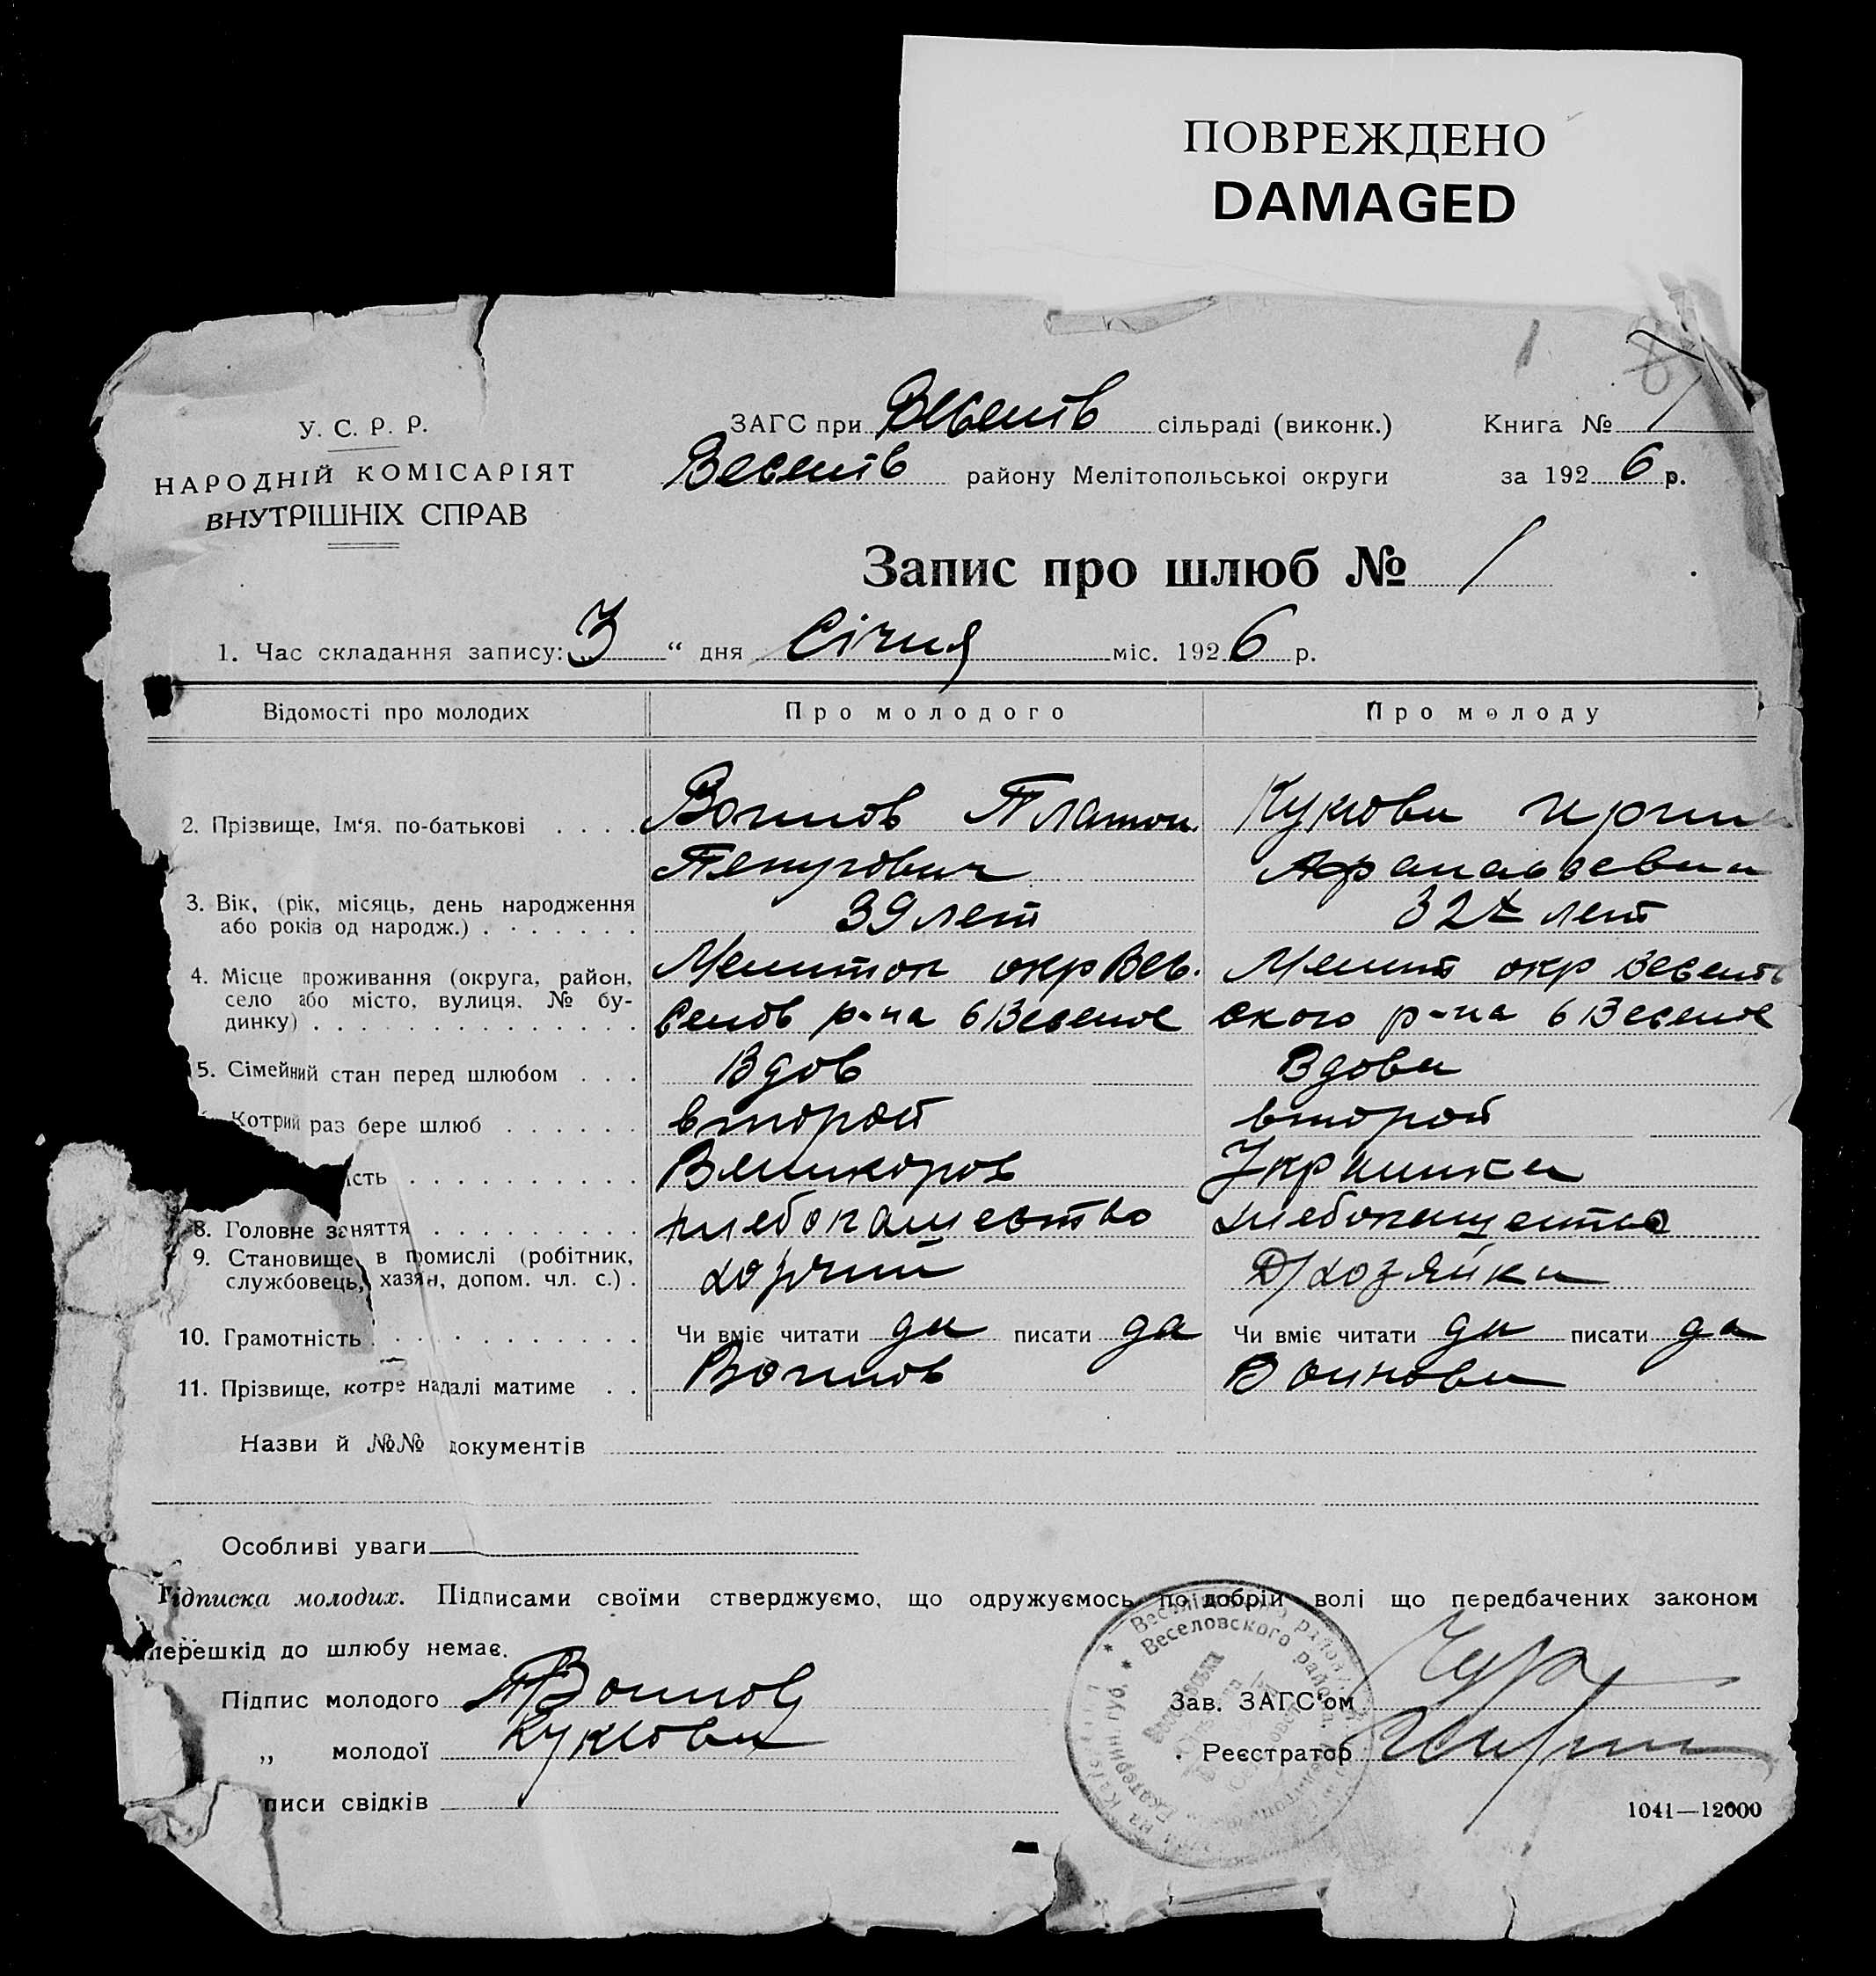 ПОВРЕЖДЕНО
DAMAGED
1
У. С. Р. Р.
НАРОДНІЙ КОМІСАРІЯТ
ВНУТРІШНІХ СПРАВ
ЗАГС при сільраді (виконк.)
Книга № 1
району Мелітопольської округи
за 1926 р.
Запис про шлюб № 1
1. Час складання запису: 3 " дня Січня міс. 1926 р.
Відомості про молодих
Про молодого
Про молоду
2. Прізвище, Ім'я. по-батькові . . . .
Воинов Платон
3. Вік, (рік, місяць, день народження
або років од народж.) . . . . . . .
39 лет
32 лет
4. Місце проживання (округа, район,
село або місто, вулиця, № бу-
динку) . . . . . . . . . . . . . .
Мелитоп окр Вес.
Мелит окр
р-на
ского р-на
5. Сімейний стан перед шлюбом . . .
Вдов
Вдова
Котрий раз бере шлюб . . . . . .
второй
второй
ість . . . . . . . . . .
Великорос
Украинка
8. Головне заняття . . . . . . . . .
хлебопашество
хлебопашество
9. Становище в промислі (робітник,
службовець, хазяїн, допом. чл. с.) .
Д/хозяйка
10. Грамотність . . . . . . . . . . .
Чи вміє читати да писати да
Чи вміє читати да писати да
11. Прізвище, котре надалі матиме . .
Воинов
Воинова
Назви й №№ документів
Особливі уваги
Підписка молодих. Підписами своїми стверджуємо, що одружуємось по добрій волі що передбачених законом
перешкід до шлюбу немає.
Підпис молодого ПВоинов
„ молодої
писи свідків
Зав. ЗАГС'ом
Реєстратор
Веселовского
Екатерин. губ.
1041—12000